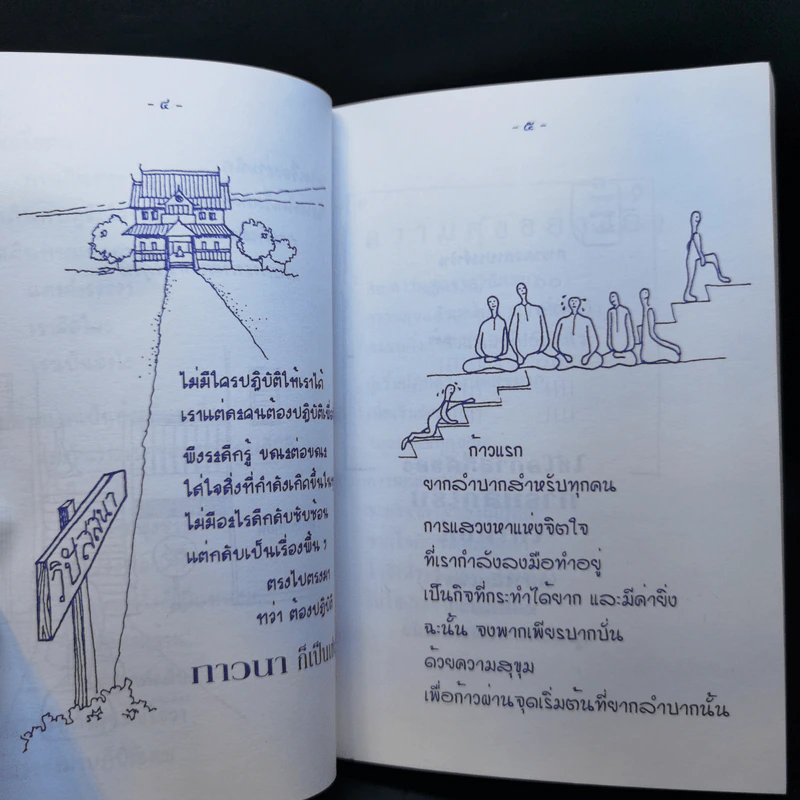 - ๔ -
ไม่มีใครปฏิบัติให้เราได้
เราแต่ละคนต้องปฏิบัติ
พึงระลึกรู้ ขณะต่อขณะ
ใส่ใจสิ่งที่กำลังเกิดขึ้นใน
ไม่มีอะไรลึกลับซับซ้อน
แต่กลับเป็นเรื่องพื้น ๆ
ตรงไปตรงมา
ทว่า ต้องปฏิบัติ
ภาวนา ก็เป็น
วิปัสสนา
- ๕ -
ก้าวแรก
ยากลำบากสำหรับทุกคน
การแสวงหาแห่งจิตใจ
ที่เรากำลังลงมือทำอยู่
เป็นกิจที่กระทำได้ยาก และมีค่ายิ่ง
ฉะนั้น จงพากเพียรบากบั่น
ด้วยความสุขุม
เพื่อก้าวผ่านจุดเริ่มต้นที่ยากลำบากนั้น